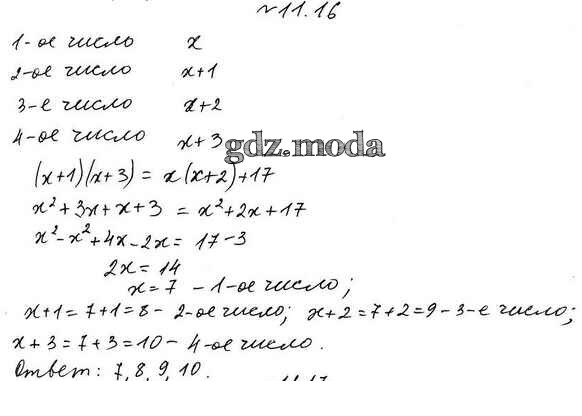 №11.16
1-ое число x
2-ое число x+1
3-е число x+2
4-ое число x+3
gdz.moda
(x+1)(x+3) = x(x+2)+17
x²+3x+x+3 = x²+2x+17
x²-x²+4x-2x = 17-3
2x = 14
x = 7 - 1-ое число;
x+1 = 7+1 = 8 - 2-ое число; x+2 = 7+2 = 9 - 3-е число;
x+3 = 7+3 = 10 - 4-ое число.
Ответ: 7, 8, 9, 10.